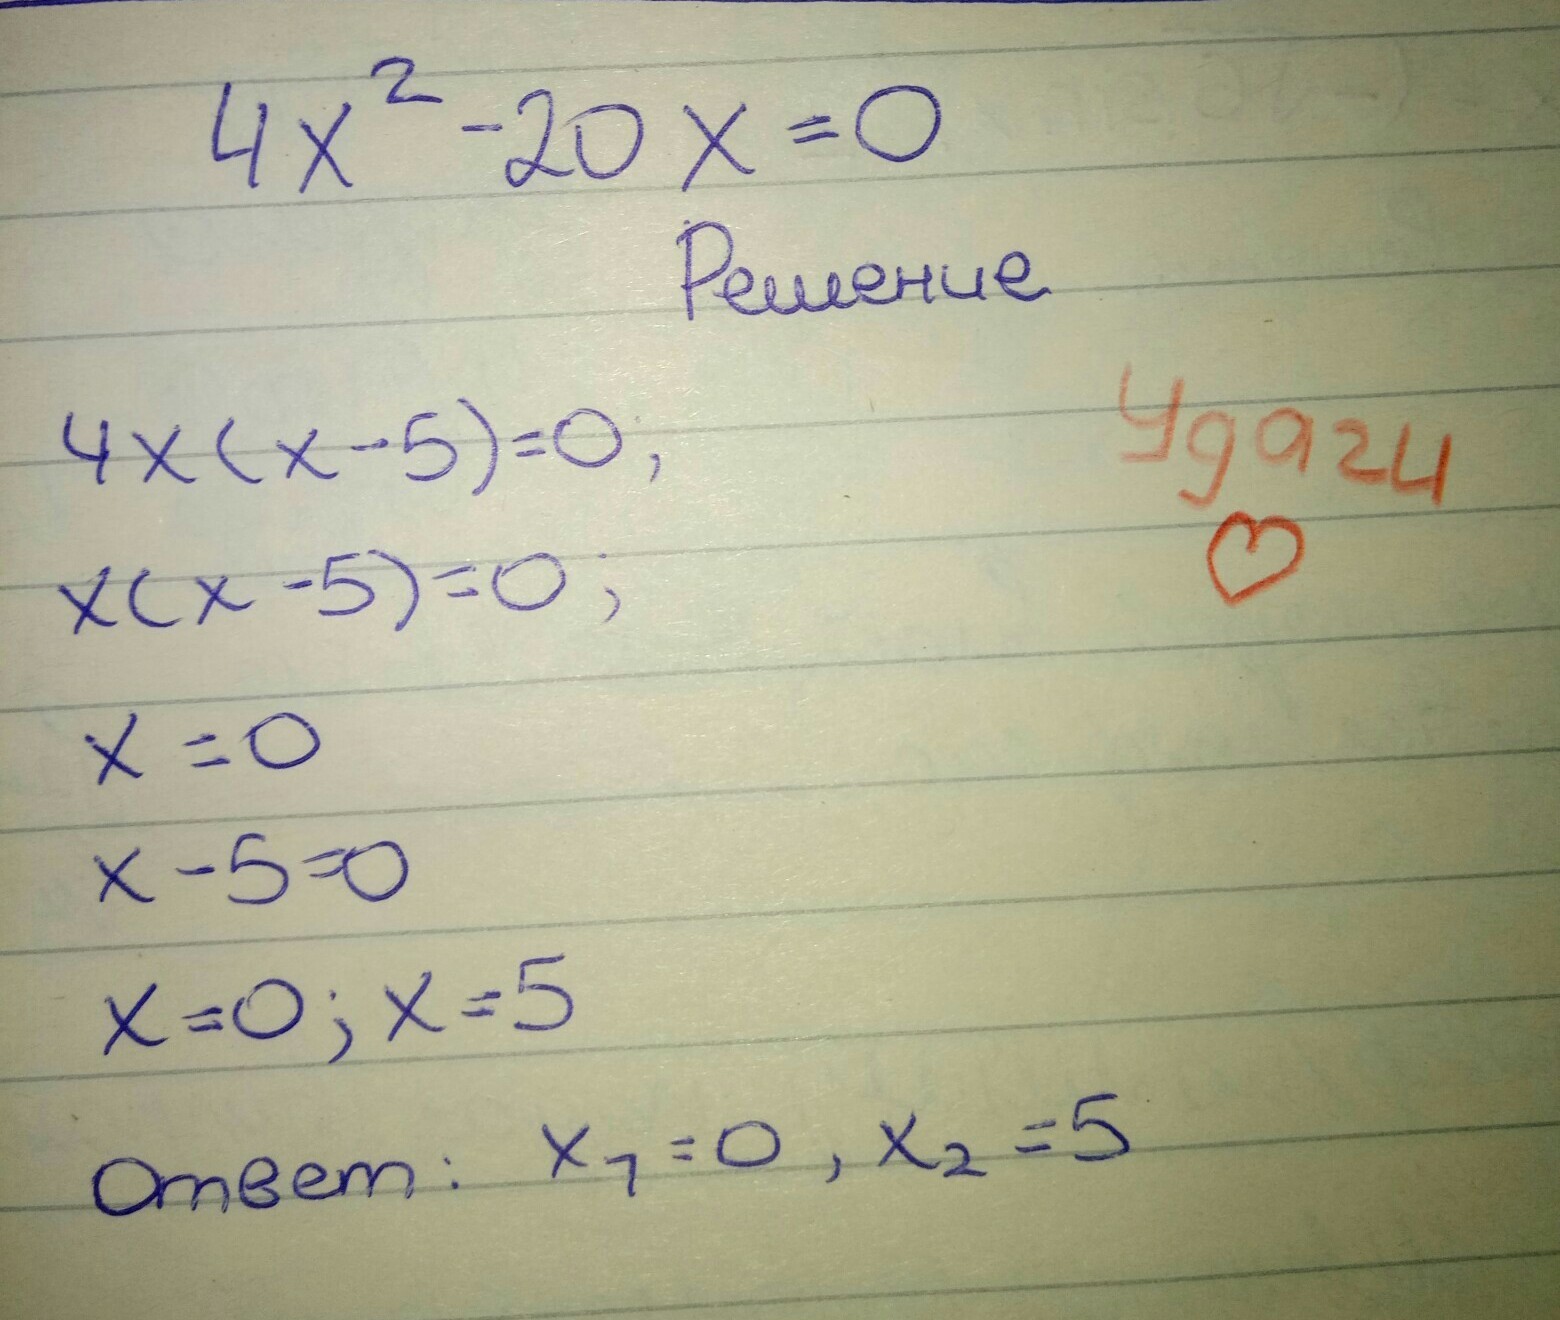 4x² -20x=0
Решение
4x(x-5)=0;
Удачи
x(x-5)=0;
x=0
x-5=0
x=0; x=5
Ответ: x₁=0, x₂=5